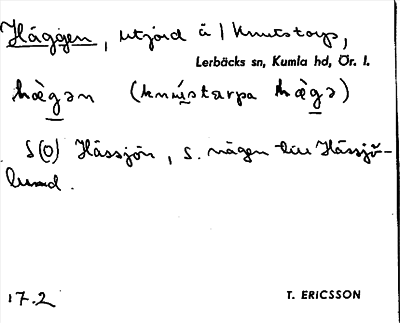 Häggen, utjord å 1 Knutstorp,
Lerbäcks sn, Kumla hd, Ör. l.
hæ̀gən (knustərpa hæ̀gə)
S(O) Hässjön, S. vägen till Hässjö-
lund.
17.2
T. ERICSSON